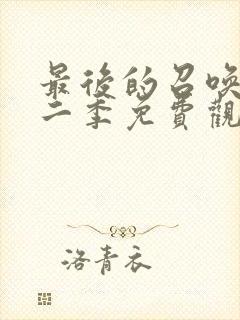 最後的召喚
二季免費觀
洛青衣